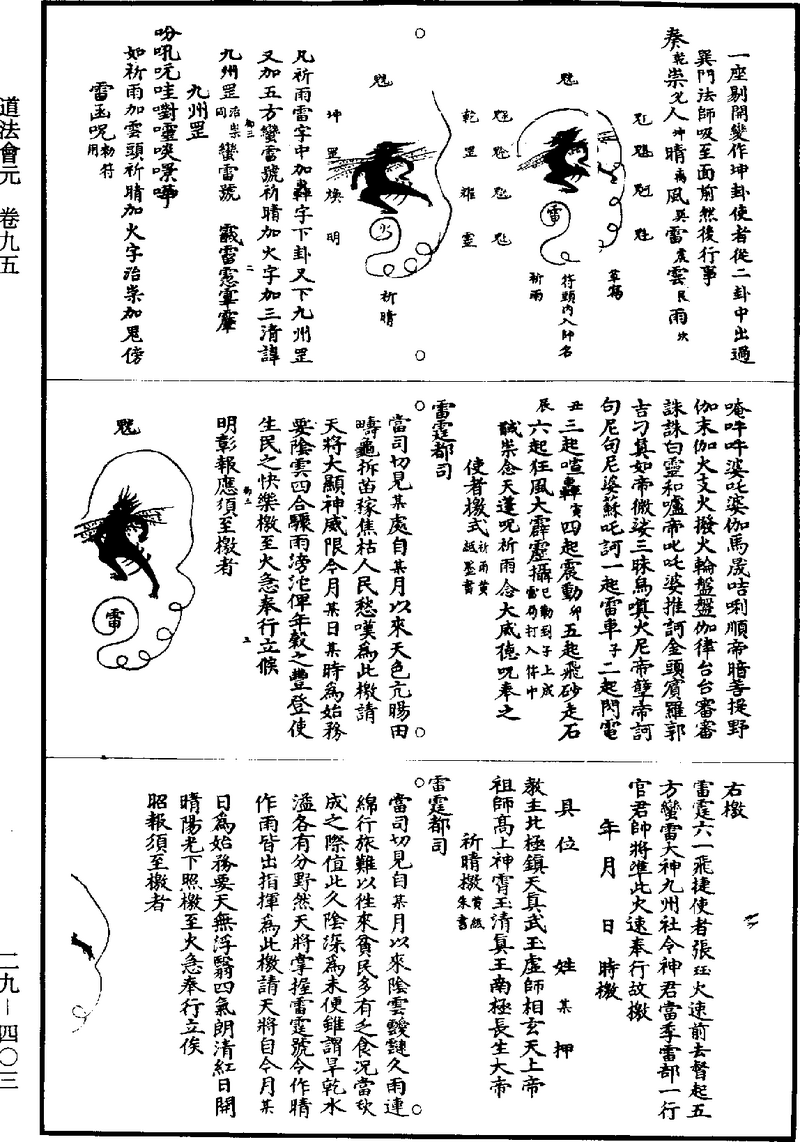 道法會元 卷九五
二九—四〇三
一座剔開變作坤卦使者從二卦中出過
巽門法師吸至面前然後行事
奏乾祟兌人坤晴离風巽雷震雲艮雨坎
魁
雷
草寫
符頭内入師名
祈雨
乾罡雄靈
魁
坤罡煥明
火
祈晴
凡祈雨雷字中加轟字下卦又下九州罡
又加五方蠻雷號祈晴加火字加三清諱
九州罡治祟同蠻雷號
九州罡
如祈雨加雲頭祈晴加火字治祟加鬼傍
雷函呪勑符用
唵吽吽婆吒婆伽馬晟咭唎順帝暗菩提野
伽末伽火支火撥火輪盤盤伽律台台審審
誅誅白靈和嚧帝叱吒婆推訶金頭賓羅郭
吉刁真如帝儆娑三昧烏嗔火尼帝孽帝訶
句尼句尼婆蘇吒訶一起雷車子二起閃電
丑三起喧轟寅四起震動卯五起飛砂走石
辰六起狂風大霹靂攝巳勑到子上成雷局打入符中
諴祟念天蓬呪祈雨念大威德呪奉之
使者檄式祈雨黄紙墨書
雷霆都司
當司切見某處自某月以來天色亢暘田
疇龜拆苗稼焦枯人民愁嘆爲此檄請
天將大顯神威限今月某日某時爲始務
要陰雲四合驟雨滂沱俾年穀之豐登使
生民之快樂檄至火急奉行立候
明彰報應須至檄者
魁
雷
右檄
雷霆六一飛捷使者張珏火速前去督起五
方蠻雷大神九州社令神君當季雷部一行
官君帥將準此火速奉行故檄
年 月 日 時檄
具位 姓 某 押
教主北極鎮天真武玉虛師相玄天上帝
祖師高上神霄玉清真王南極長生大帝
祈晴檄黄紙朱書
雷霆都司
當司切見自某月以來陰雲靉靆久雨連
綿行旅難以往來貧民多有乏食況當秋
成之際值此久陰深爲未便雖謂旱乾水
溢各有分野然天將掌握雷霆號令作晴
作雨皆出指揮爲此檄請天將自今月某
日爲始務要天無浮翳四氣朗清紅日開
晴陽光下照檄至火急奉行立俟
昭報須至檄者